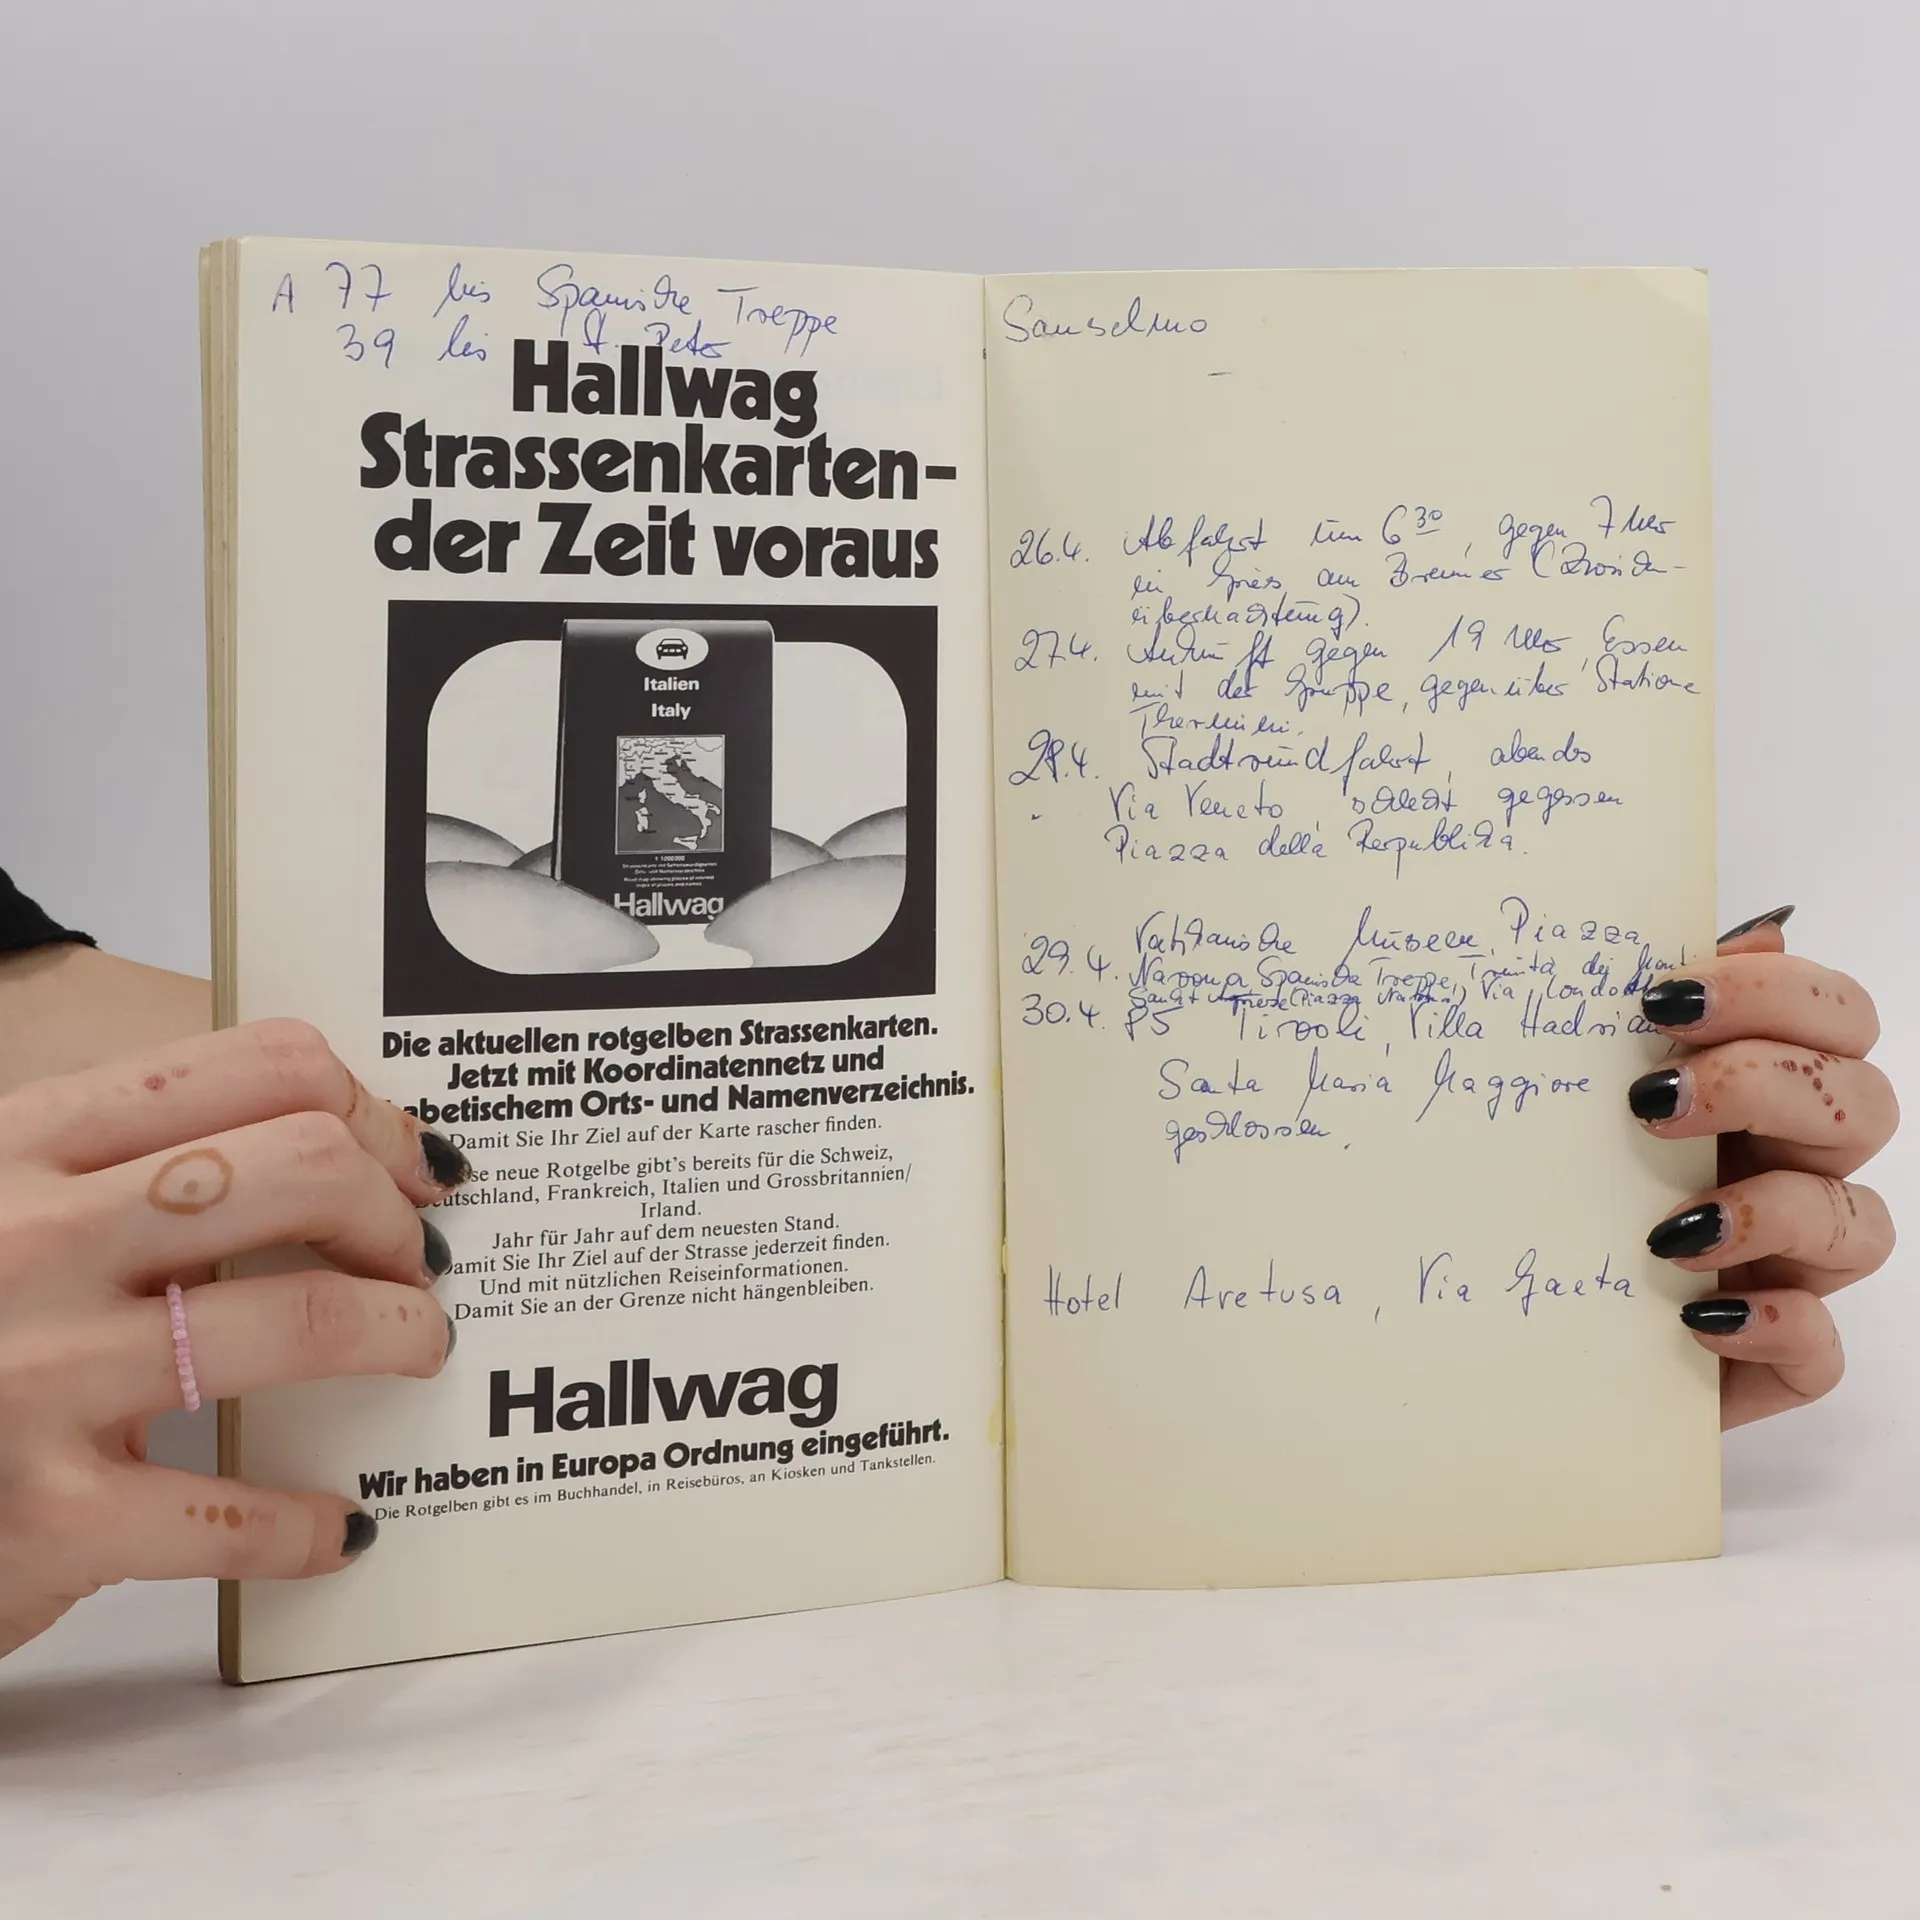 A 77 bis Spanische Treppe
39 bis St. Peter
Hallwag
Strassenkarten-
der Zeit voraus
Italien
Italy
Hallwag
Die aktuellen rotgelben Strassenkarten.
Jetzt mit Koordinatennetz und
abetischem Orts- und Namenverzeichnis.
Damit Sie Ihr Ziel auf der Karte rascher finden.
se neue Rotgelbe gibt's bereits für die Schweiz,
eutschland, Frankreich, Italien und Grossbritannien/
Irland.
Jahr für Jahr auf dem neuesten Stand.
amit Sie Ihr Ziel auf der Strasse jederzeit finden.
Und mit nützlichen Reiseinformationen.
Damit Sie an der Grenze nicht hängenbleiben.
Hallwag
Wir haben in Europa Ordnung eingeführt.
Die Rotgelben gibt es im Buchhandel, in Reisebüros, an Kiosken und Tankstellen.
Sanselmo
26.4. Abfahrt um 6 30, gegen 7 Uhr
in Gries am Brenner (Zwischen-
übernachtung).
27.4. Ankunft gegen 19 Uhr, Essen
mit der Gruppe, gegenüber Statione
Thermini.
28.4. Stadtrundfahrt, abends
Via Veneto, schlecht gegessen
Piazza della Republika.
29.4. Vatikanische Museen, Piazza
Navona, Spanische Treppe, Trinità dei Monti
Sankt (Piazza Navona) Via
30.4. Tivoli, Villa Hadrian
Santa Maria Maggiore
geschlossen.
Hotel Aretusa, Via Gaeta